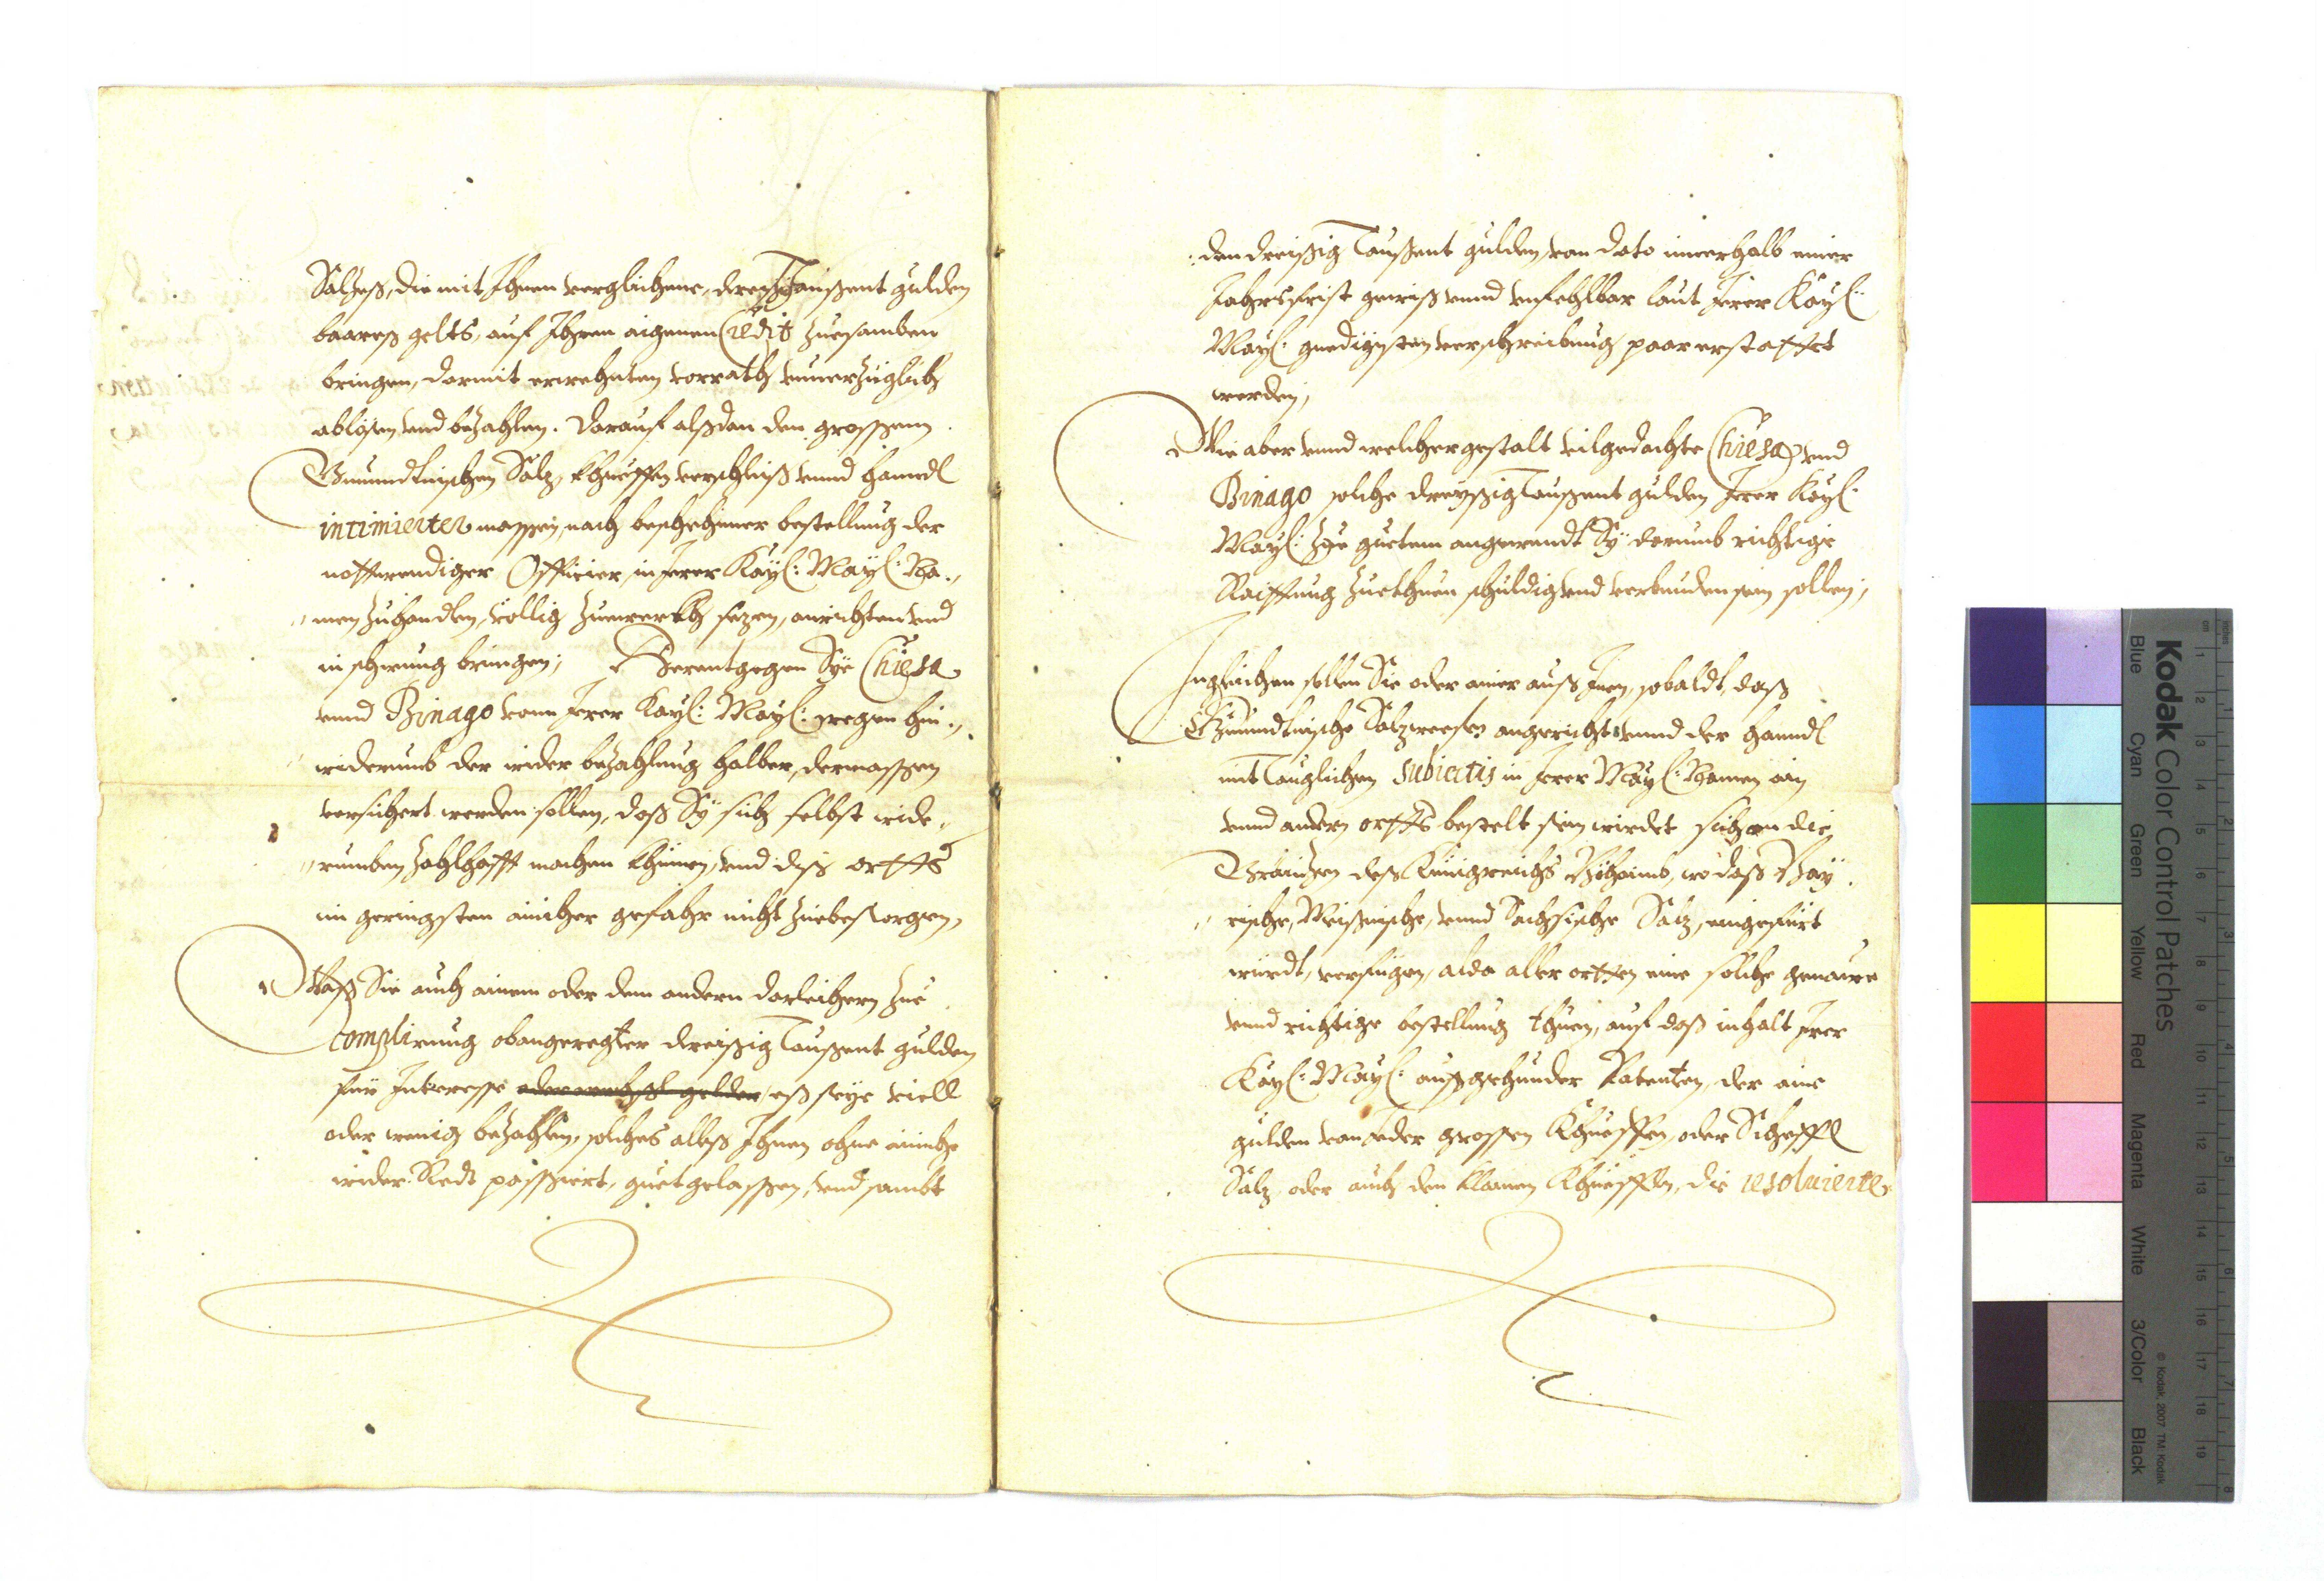 Salzeß, die mit Ihnen verglichene, dreissig Taußent gulden
baares gelts, auf Ihren aigenen Credit zuesamben
bringen, darmit erwehnten vorrath unverzüglich
ablösen und bezahlen. Darauf alßdan den grossen
Gmundtnischen Salz, khueffen verschleiß unnd hanndl
intimierter massen, nach beschehener bestellung der
nottwendiger Officier, in Irer Kay: May: Na„
„men zuhandlen, völlig zuwerkh sezen, anrichten und
in schwung bringen; Herentgegen Sye Chiesa
unnd Binago vonn Irer Kay: May: wegen hin„
„widerumb der wider bezahlung halber, dermassen
versichert werden sollen, daß Sy sich selbst wide„
„rumben zahlhafft machen khünen, und diß orths
im geringsten ainicher gefahr nicht zuebesorgen,
Waß Sie auch ainem oder dem andern darleihern zue
complirung obangeregter dreissig Taußent gulden
für Interesse oder wechßl gelder, eß seye viell
oder wenig bezahlen, solches alleß Ihnen ohne ainiche
wider Redt passiert, guet gelassen, und sambt
den dreissig Taußent gulden, von dato innerhalb einer
Jahrsfrist gewiß unnd unfehlbar laut Irer Kay:
May: gnedigsten verschreibung paar erstattet
werden,
Wie aber unnd welicher gestalt vilgedachte Chiesa und
Binago solche dreyssig Taußent gulden Irer Kay:
May: zue guetem angewendt Sy darumb richtige
Raittung zuethuen schuldig und verbunden sein sollen,
Ingleichen sollen Sie oder ainer auß Inen, sobaldt, daß
Gmundtnische Salzweesen angericht unnd der hanndl
mit Tauglichen subiectis in Irer May: Namen ain
unnd andern orths bestelt sein wirdet sich an die
Gränizen deß Künigreichs Böhaimb, wo daß Bay„
„rische, Meißnische, unnd Sachsische Salz, eingefürt
würdt, verfüegen, alda aller orthen eine solche genaue
unnd richtige bestellung thuen, auf daß inhalt Irer
Kay: May: außgehunder Patenten, der aine
gulden von Jeder grossen Khueffen, oder Scheffl
Salz oder auch den klainen Khüeffln, die resoluierte